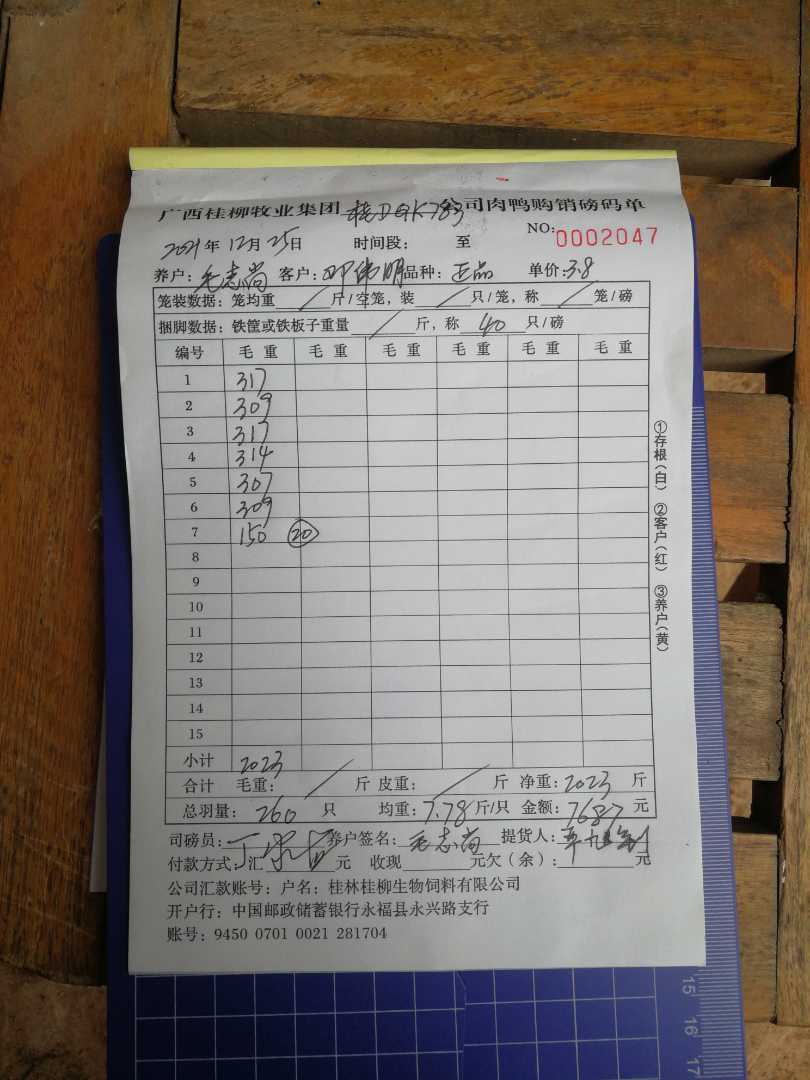 广西桂柳牧业集团 桂DGK783 公司肉鸭购销磅码单
2021年12月25日 时间段: 至 NO: 0002047
养户: 毛志尚 客户: 邓伟明 品种: 正品 单价: 3.8
笼装数据: 笼均重 / 斤/空笼, 装 / 只/笼, 称 / 笼/磅
捆脚数据: 铁筐或铁板子重量 / 斤, 称 40 只/磅
编号 毛重 毛重 毛重 毛重 毛重 毛重
1 317
2 309
3 317
4 314
5 307
6 309
7 150 20
8
9
10
11
12
13
14
15
小计 2023
合计 毛重: / 斤 皮重: / 斤 净重: 2023 斤
总羽量: 260 只 均重: 7.78 斤/只 金额: 7687 元
司磅员: 养户签名: 毛志尚 提货人:
付款方式: 汇 元 收现 元欠(余): 元
公司汇款账号: 户名: 桂林桂柳生物饲料有限公司
开户行: 中国邮政储蓄银行永福县永兴路支行
账号: 9450 0701 0021 281704
①存根(白) ②客户(红) ③养户(黄)
15
16
17